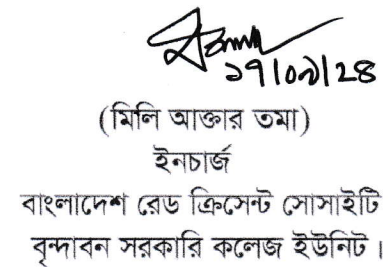 ১৭|০৯|২৪
(মিলি আক্তার তমা)
ইনচার্জ
বাংলাদেশ রেড ক্রিসেন্ট সোসাইটি
বৃন্দাবন সরকারি কলেজ ইউনিট।